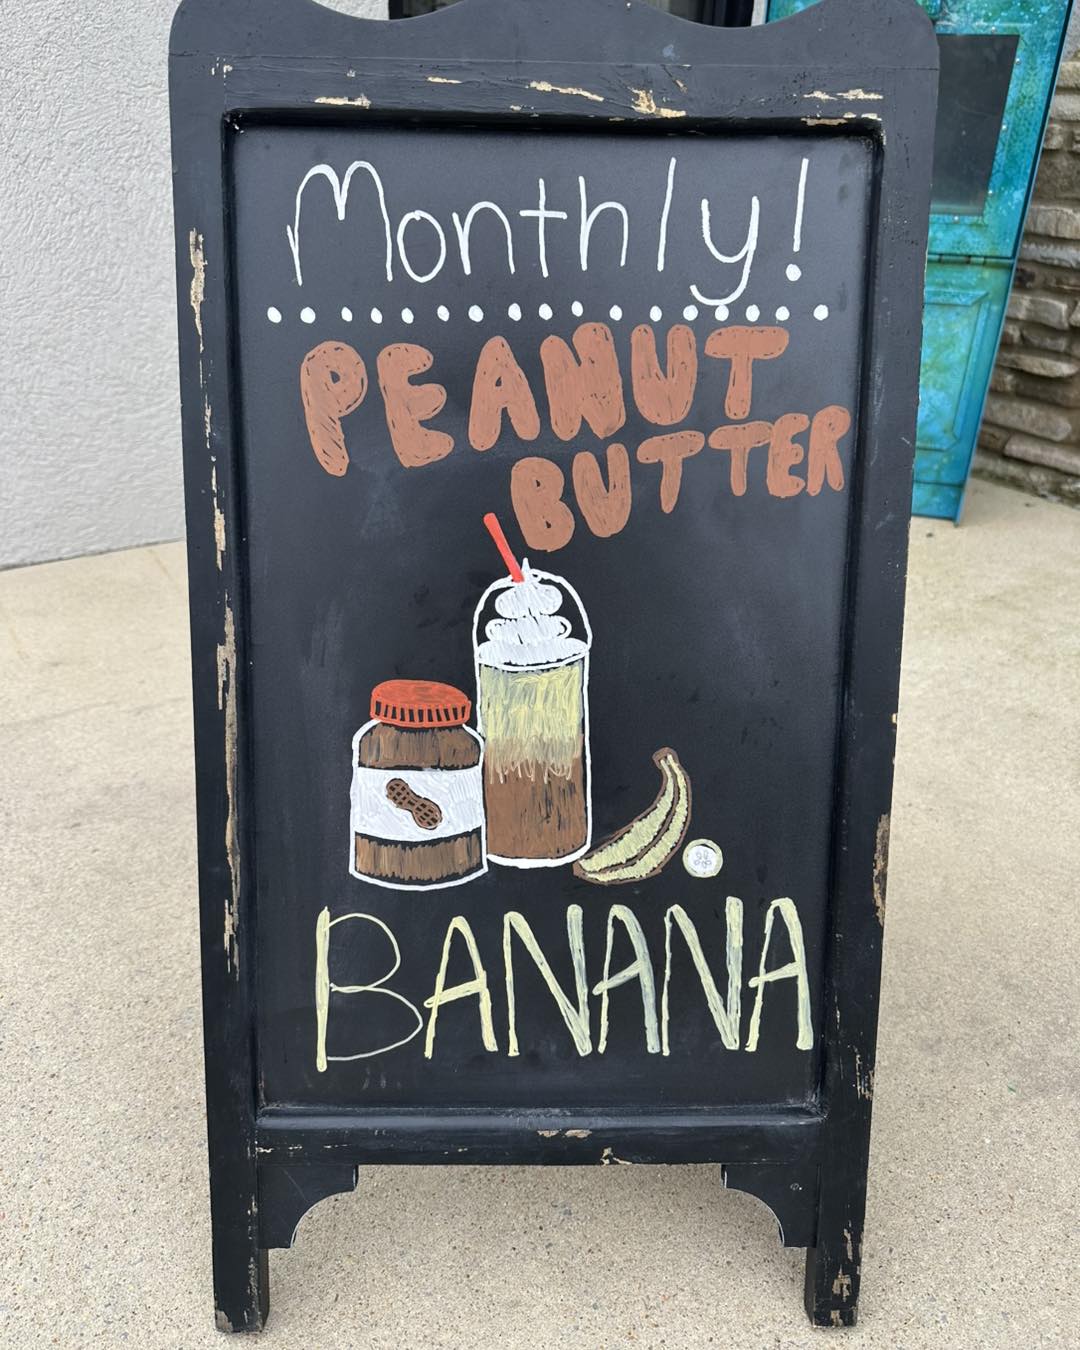 Monthly!
PEANUT
BUTTER
BANANA